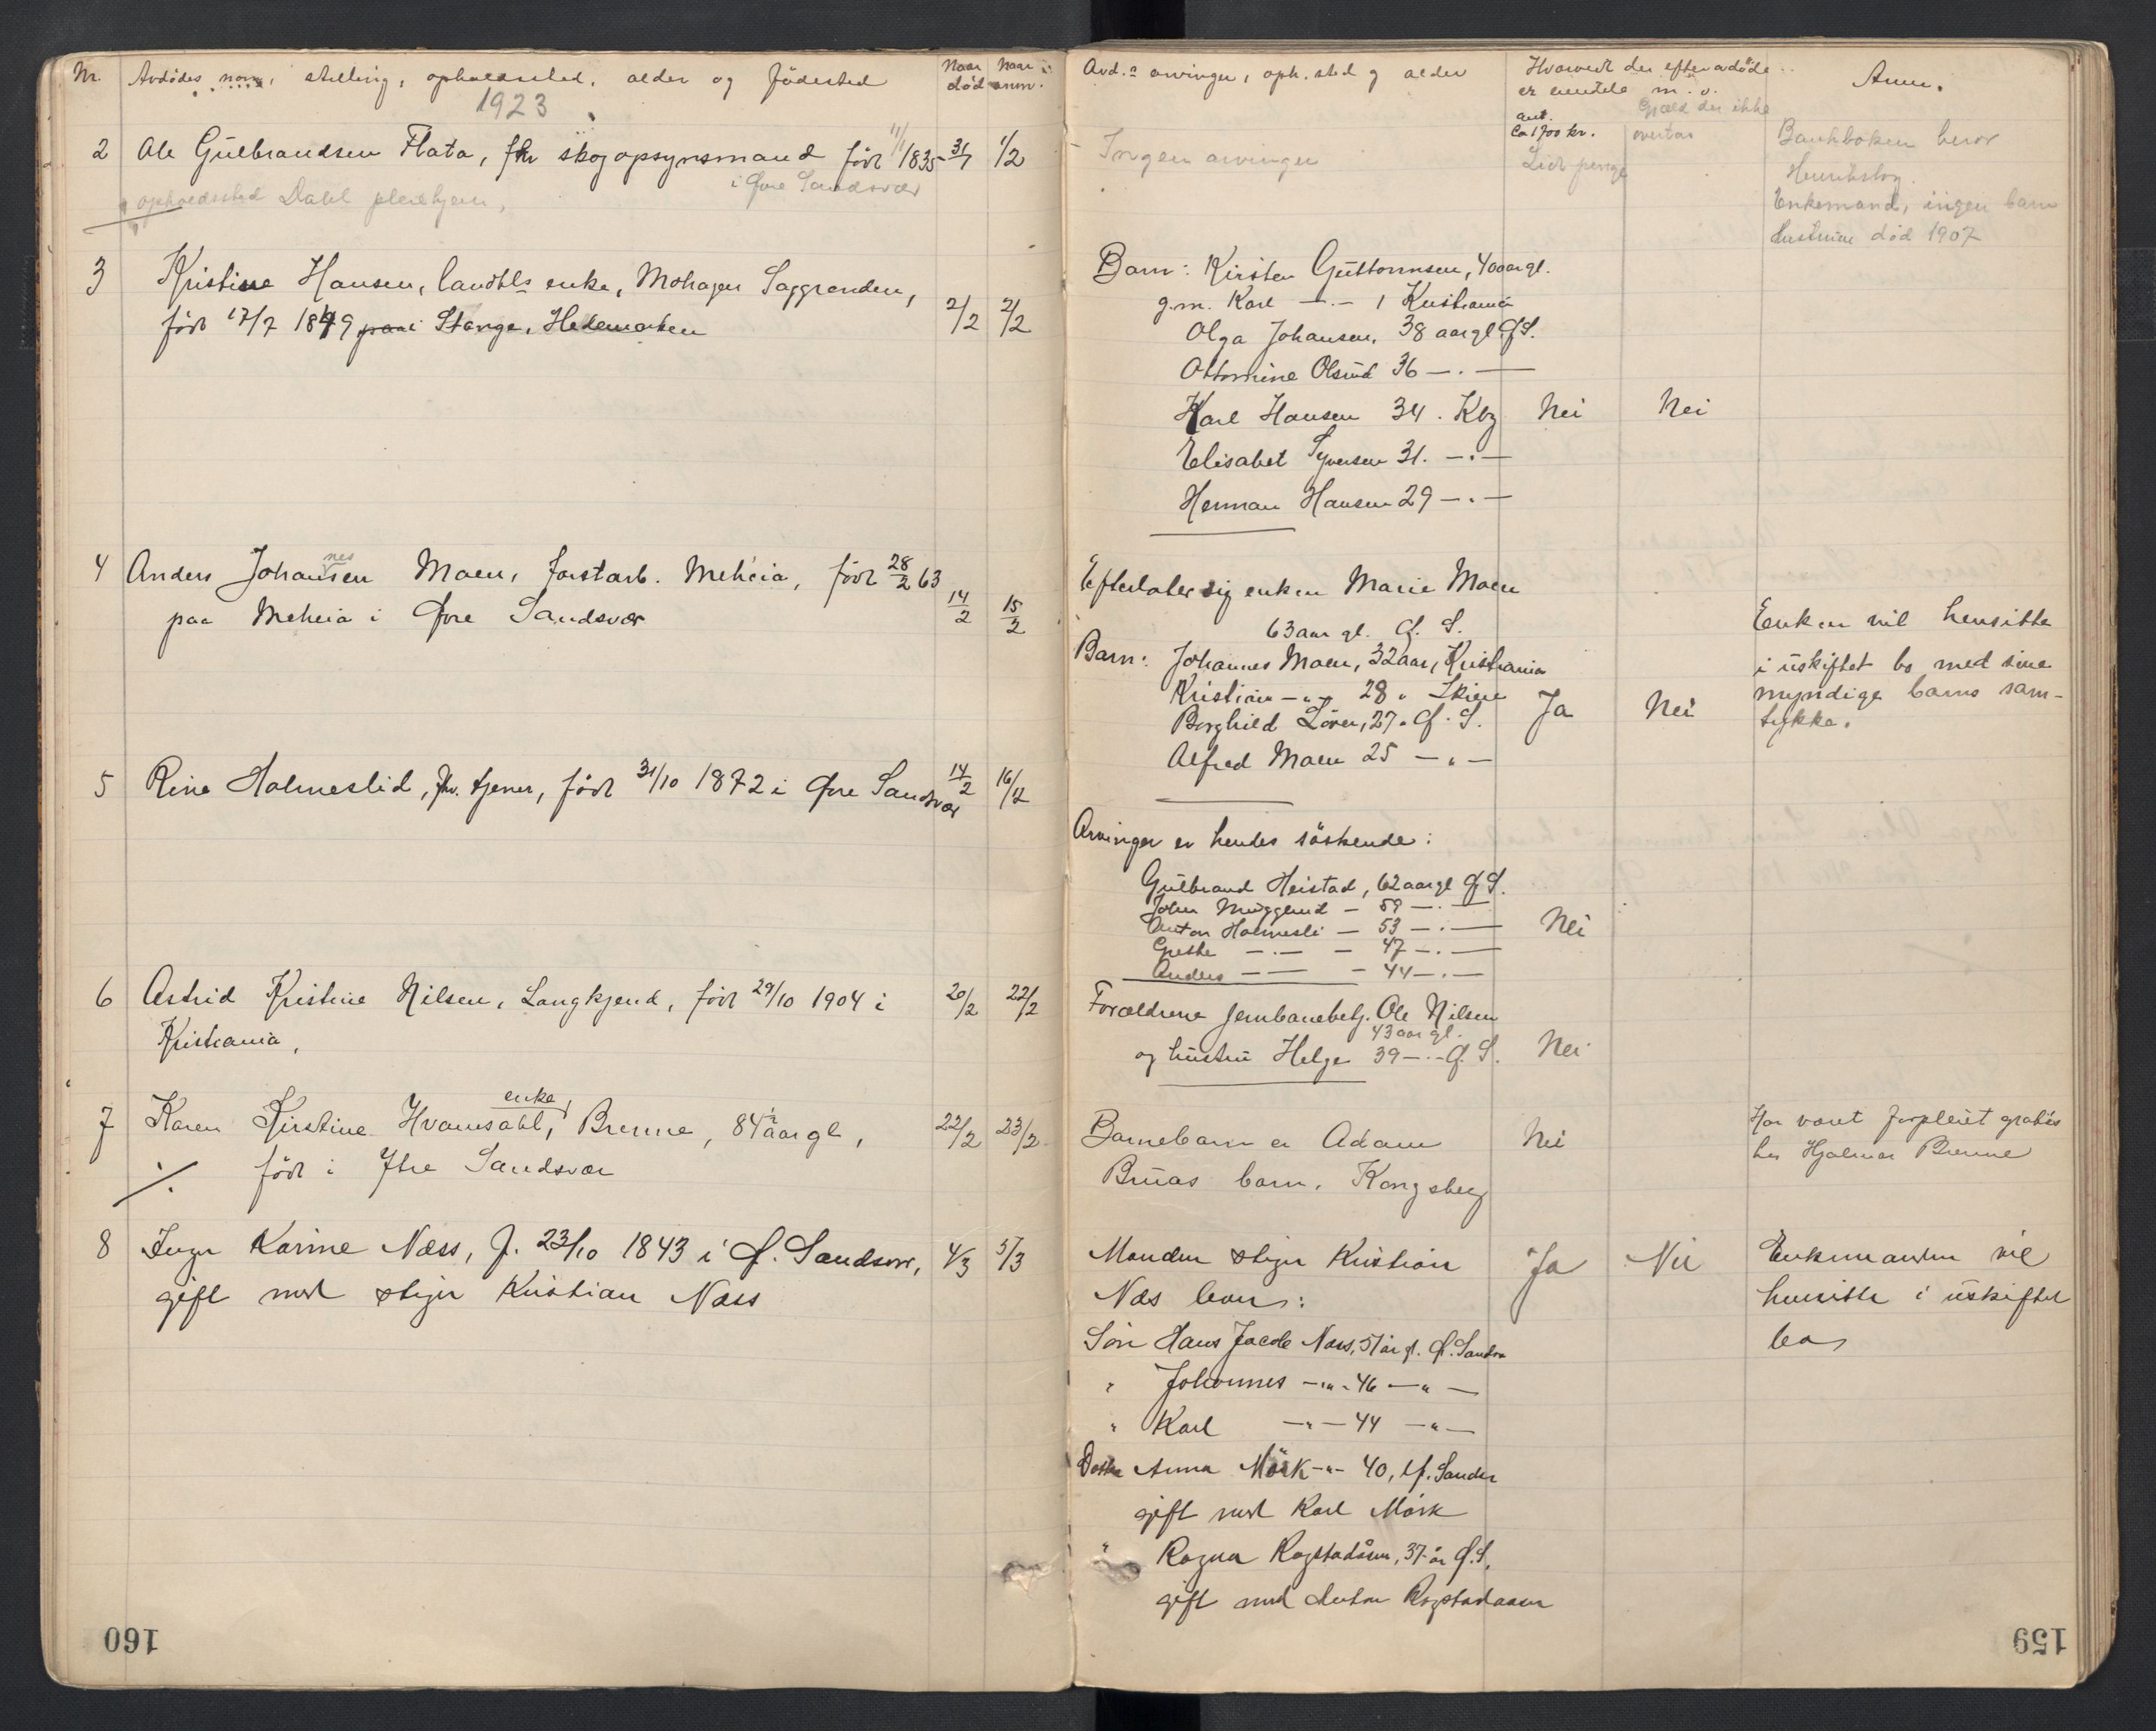 Nr. Avdødes navn, stilling, opholdssted, alder og fødested Naar død Naar anm.
1923
2 Ole Gulbrandsen Flata, fhv skogopsynsmand født 11/1 1835 31/1 1/2
i Øvre Sandsvær
opholdssted Dahl pleiehjem,
3 Kristine Hansen, landhls enke, Mohagen Saggrenden,
født 17/7 1849 i Stange, Hedemarken 2/2 2/2
4 Anders Johannessen Moen, forstarb. Meheia, født 28/2 63
paa Meheia i Øvre Sandsvær 14/2 15/2
5 Rine Holmeslid, fhv. tjener, født 31/10 1872 i Øvre Sandsvær 14/2 16/2
6 Astrid Kristine Nilsen, Langkjend, født 29/10 1904 i 20/2 22/2
Kristiania,
7 Karen Kirstine Hvamsahl, enke, Brenne, 84 1/2 aar gl, 22/2 23/2
født i Ytre Sandsvær
8 Inger Karine Næss, f. 23/10 1843 i Ø. Sandsvær, 4/3 5/3
gift med stiger Kristian Næss
160
Avd.s arvinger, oph. sted og alder Hvorvidt der efter avdøde Anm.
er m. v.
Gjæld der ikke
ant.
Ca 1700 kr. overtas Bankboken beror
Ingen arvinger
Enkemand, ingen barn
hustruen død 1907
Barn: Kirsten Guttormsen, 40 aar gl.
g.m. Karl —.— i Kristiania
Olga Johansen, 38 aar gl. Ø.S.
Ottomine Olsrud 36 —.—
Karl Hansen 34. Kbg Nei Nei
Elisabet Syversen 31. —.—
Herman Hansen 29 —.—
Efterlater sig enken Marie Moen
63 aar gl. Ø. S. Enken vil hensitte
Barn: Johannes Moen, 32 aar, Kristiania i uskiftet bo med sine
Kristian —"— 28 " Skien myndige barns sam-
Borghild Løver, 27. Ø. S. Ja Nei tykke.
Alfred Moen 25 —"—
Arvinger er hendes søskende:
Gulbrand Heistad, 62 aar gl Ø S.
John Muggerud — 59 —.—
Anton Holmesli — 53 —.— Nei
Grethe —.— — 47 —.—
Anders —— — 44 —.—
Forældrene jernbanebetj. Ole Nilsen
43 aar gl.
og hustru Helge 39 —.— Ø. S. Nei
Barnebarn er Adam Nei Har været forpleiet gratis
Bruas barn. Kongsberg hos Hjalmar Brenne
Manden stiger Kristian Ja Nei Enkemanden vil
Næs lever: hensitte i uskiftet
bo
Søn Hans Jacob Næss, 51 år gl. Ø. Sandsv
" Johannes —"— 46 —"—
" Karl —"— 44 —"—
Datter Anna Mørk —"— 40, Ø. Sandsv
gift med Karl Mørk
" Ragna Rogstadåsen, 37 år Ø.S,
gift med Anton Rogstadaasen
159